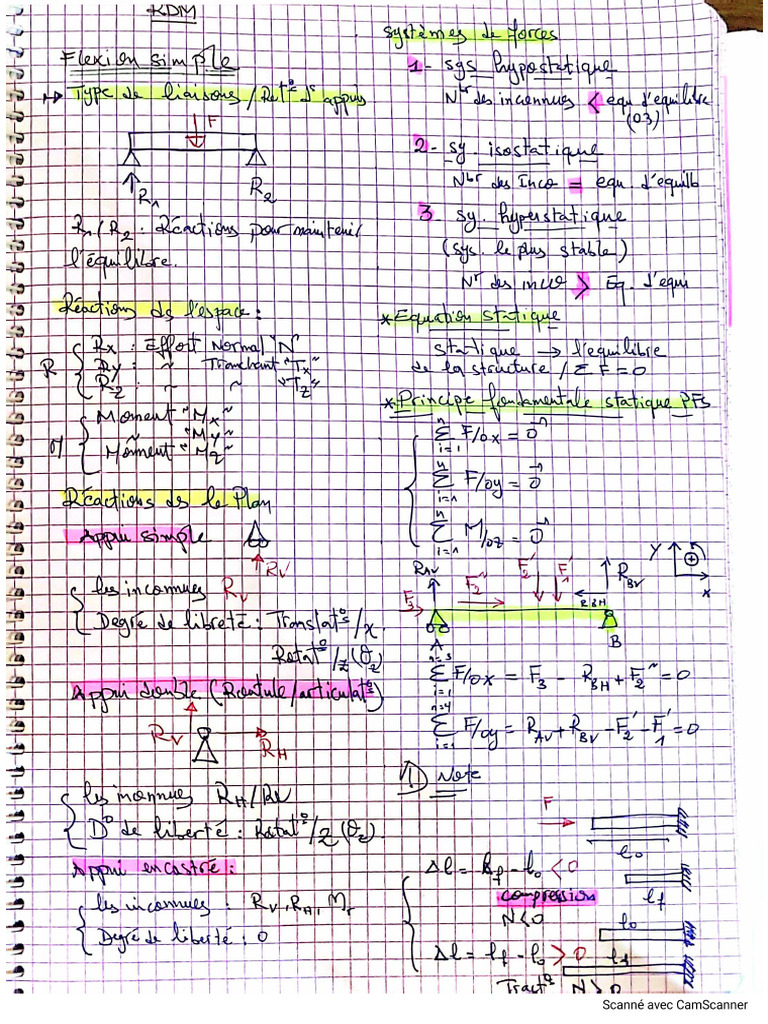 RDM
Flexion simple
Type de liaisons / Rot° d'appuis
F
R1
R2
R1 / R2 : Réactions pour maintenir
l'équilibre.
Réactions ds l'espace :
R
Rx : Effort Normal "N"
Ry : ~ Tranchant "Tx"
Rz : ~ ~ "Tz"
Moment "Mx"
~ "My"
Moment "Mz"
Réactions ds le Plan
Appui simple
RV
les inconnues RV
Degré de liberté : Translat° /x
Rotat° /z (θz)
Appui double (Rotule/articulat°)
RV
RH
les inconnues RH / RV
D° de liberté : Rotat° /z (θz)
Appui encastré :
les inconnues : RV, RH, Mr
Degré de liberté : 0
systèmes de forces
1- sys hypostatique
Nbr des inconnues < equ d'equilibre
(03)
2- sy isostatique
Nbr des Inco = equ. d'équilb
3- sy. hyperstatique
(sys. le plus stable)
Nr des inco > Eq. d'equi
* Equation statique
statique → l'equilibre
de la structure / Σ F = 0
* Principe fondamentale statique PFS
n Σ i=1 F/ox = 0
n Σ i=1 F/oy = 0
n Σ i=1 M/oz = 0
RAV
F3
F2''
F2'
F1'
RBV
RBH
Y
x
A
B
n=3 Σ i=1 F/ox = F3 - RBH + F2'' = 0
n=4 Σ i=1 F/oy = RAV + RBV - F2' - F1' = 0
Note
F
l0
Δl = lf - l0 < 0
lf
compression
N<0
l0
Δl = lf - l0 > 0
lf
Tract° N > 0
Scanné avec CamScanner